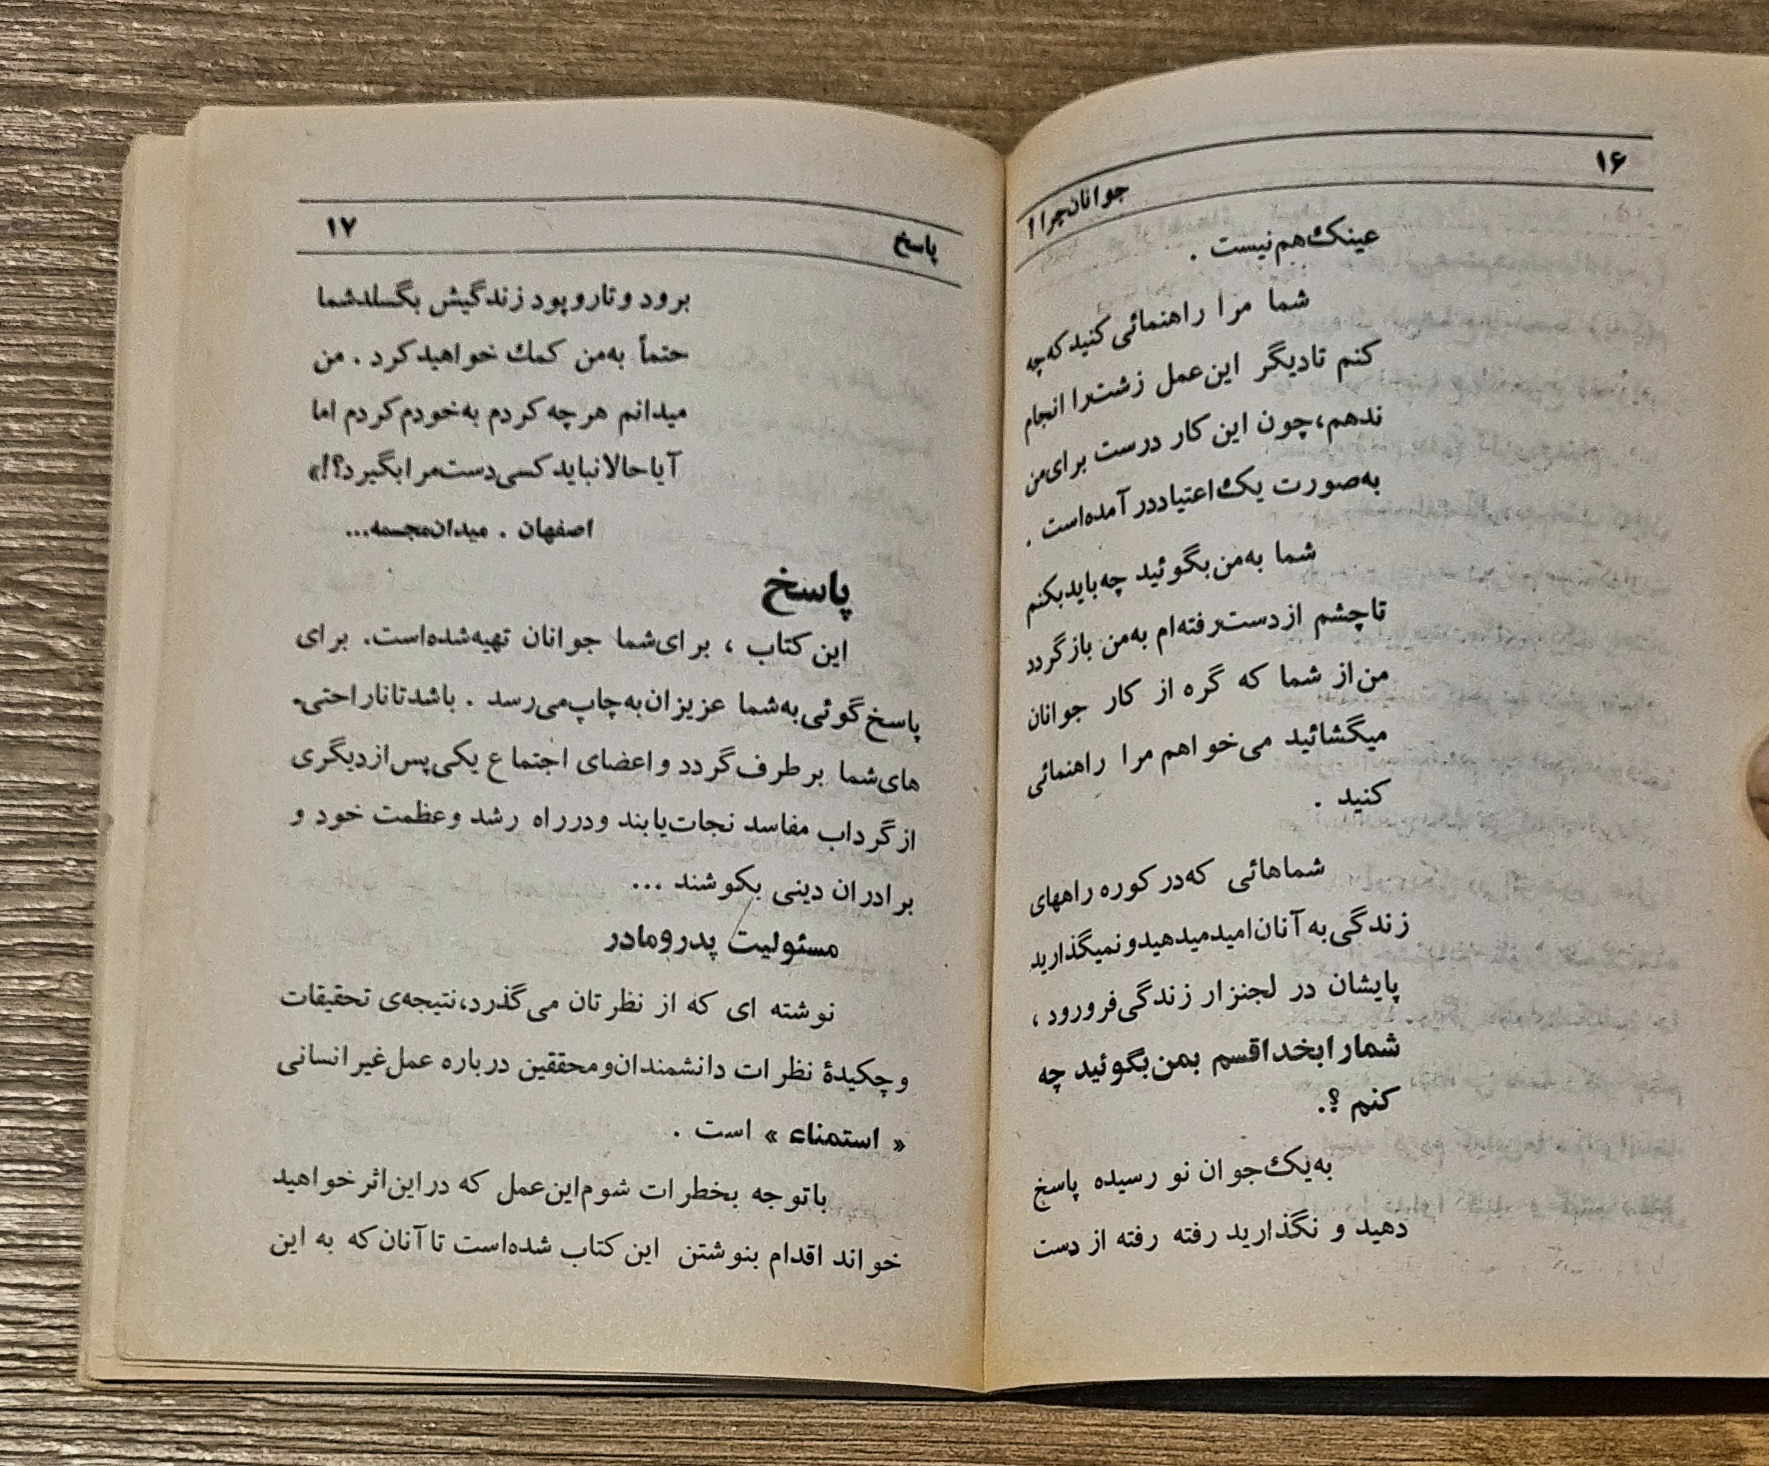 ۱۶
جوانان چرا؟
عینک هم نیست .
شما مرا راهنمائی کنید که چه
کنم تا دیگر این عمل زشت را انجام
ندهم، چون این کار درست برای من
به صورت یک اعتیاد در آمده است .
شما به من بگوئید چه باید بکنم
تا چشم از دست رفته‌ام به من باز گردد
من از شما که گره از کار جوانان
میگشائید می‌خواهم مرا راهنمائی
کنید .
شماهائی که در کوره راههای
زندگی به آنان امید میدهید و نمیگذارید
پایشان در لجنزار زندگی فرو رود ،
شما را بخدا قسم بمن بگوئید چه
کنم ؟.
به یک جوان نو رسیده پاسخ
دهید و نگذارید رفته رفته از دست
پاسخ
۱۷
برود و تار و پود زندگیش بگسلد شما
حتماً به من کمک خواهید کرد . من
میدانم هر چه کردم به خودم کردم اما
آیا حالا نباید کسی دست مرا بگیرد؟!»
اصفهان . میدان مجسمه...
پاسخ
این کتاب ، برای شما جوانان تهیه شده است. برای
پاسخ گوئی به شما عزیزان به چاپ می‌رسد . باشد تا ناراحتی-
های شما بر طرف گردد و اعضای اجتماع یکی پس از دیگری
از گرداب مفاسد نجات یابند و در راه رشد و عظمت خود و
برادران دینی بکوشند ...
مسئولیت پدر و مادر
نوشته ای که از نظرتان می‌گذرد، نتیجه‌ی تحقیقات
و چکیدهٔ نظرات دانشمندان و محققین درباره عمل غیر انسانی
« استمناء » است .
با توجه بخطرات شوم این عمل که در این اثر خواهید
خواند اقدام بنوشتن این کتاب شده است تا آنان که به این